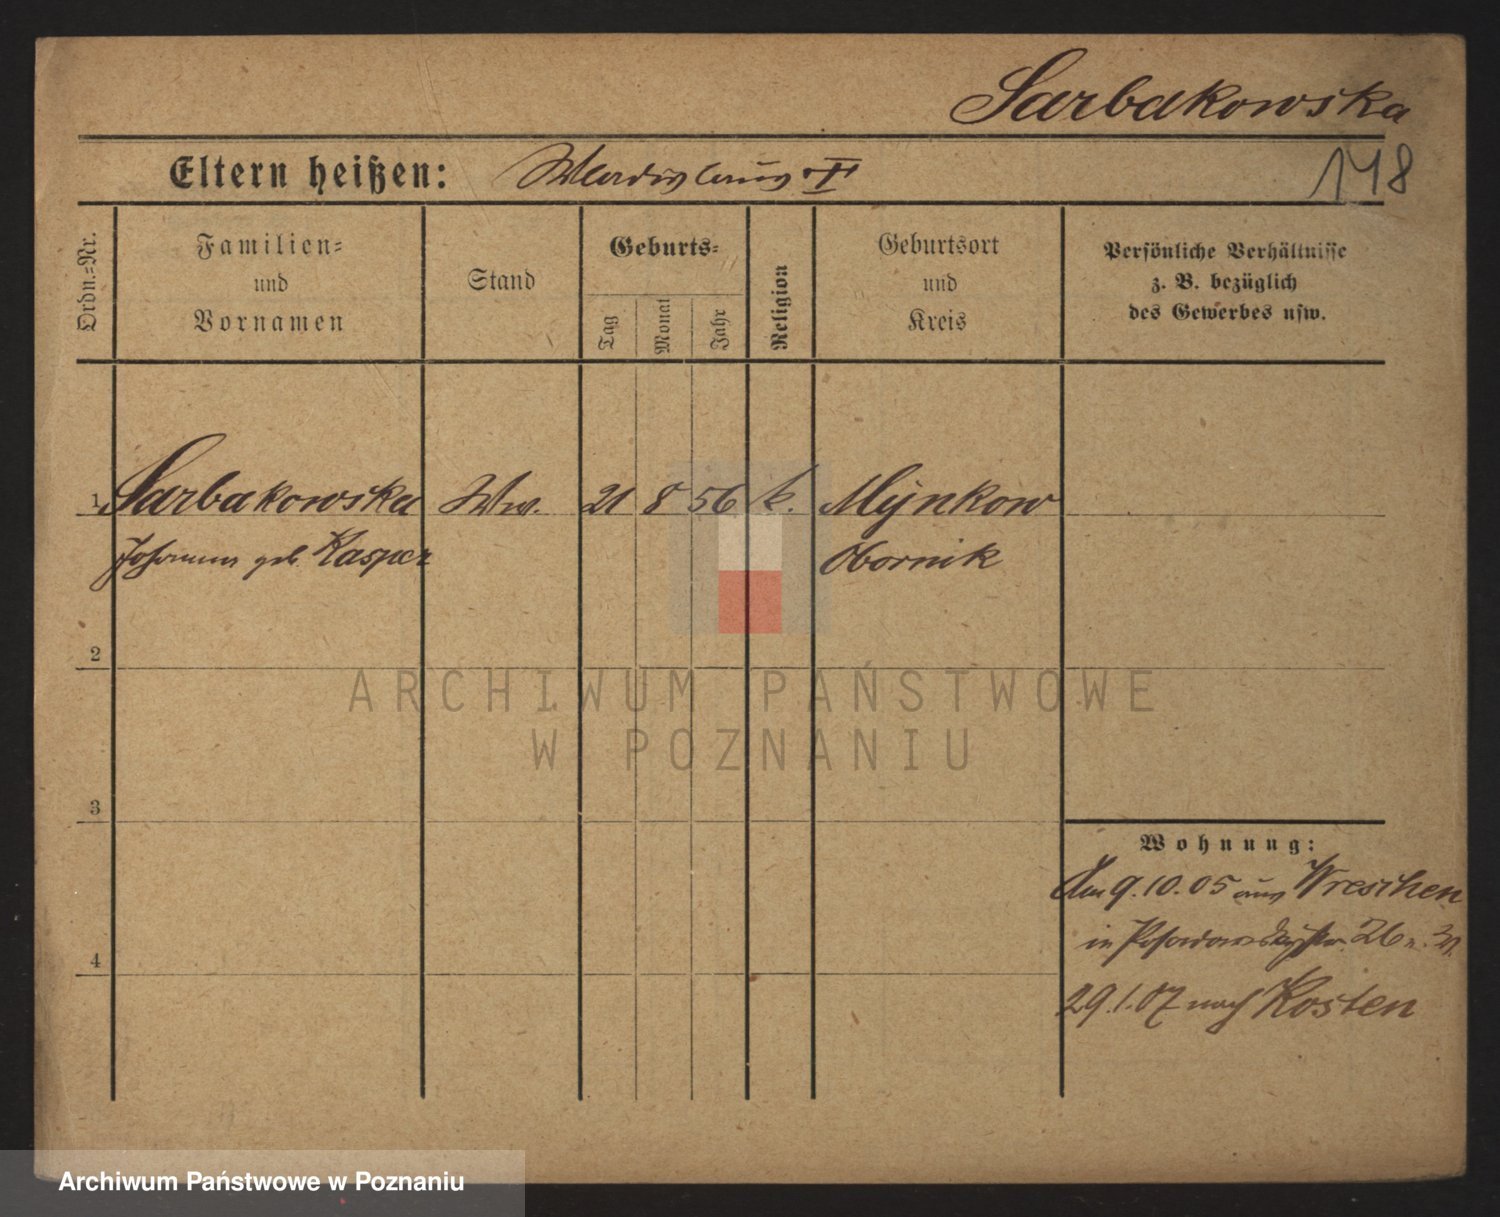 Sarbakowska
Eltern heißen: Wladislaus
148
Ordn.-Nr.
Familien-
und
Vornamen
Stand
Geburts-
Tag
Monat
Jahr
Religion
Geburtsort
und
Kreis
Persönliche Verhältnisse
z. B. bezüglich
des Gewerbes usw.
1 Sarbakowska Ww. 21 8 56 k. Mÿnkow
Johanna geb. Kasper Obornik
2
3
4
Wohnung:
Am 9.10.05 aus Wreschen
in 26
29.1.07 nach Kosten
ARCHIWUM PAŃSTWOWE
W POZNANIU
Archiwum Państwowe w Poznaniu